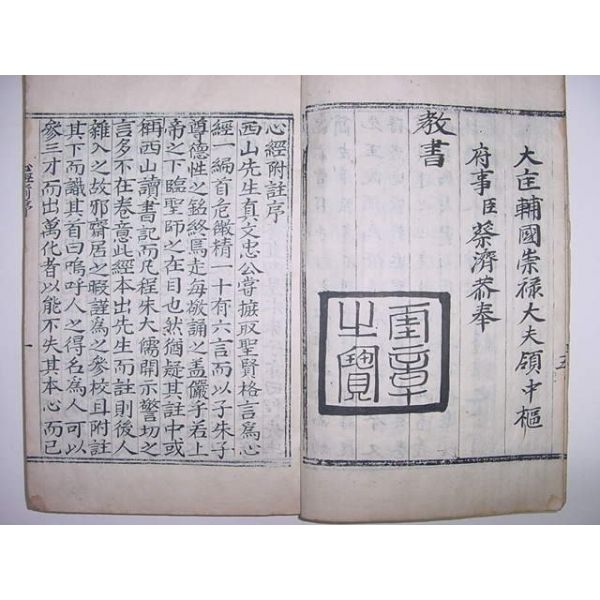 大匡輔國崇祿大夫領中樞
府事臣蔡濟恭奉
教書
奎章
之寶
五
心經附註序
西山先生真文忠公嘗摭取聖賢格言爲心
經一編首危微精一十有六言而以子朱子
尊德性之銘終焉走每敬誦之盖儼乎若上
帝之下臨聖師之在目也然猶疑其註中或
稱西山讀書記而凡程朱大儒開示警切之
言多不在卷意此經本出先生而註則後人
雜入之故邪齋居之暇謹爲之參校且附註
其下而識其首曰嗚呼人之得名爲人可以
參三才而出萬化者以能不失其本心而已